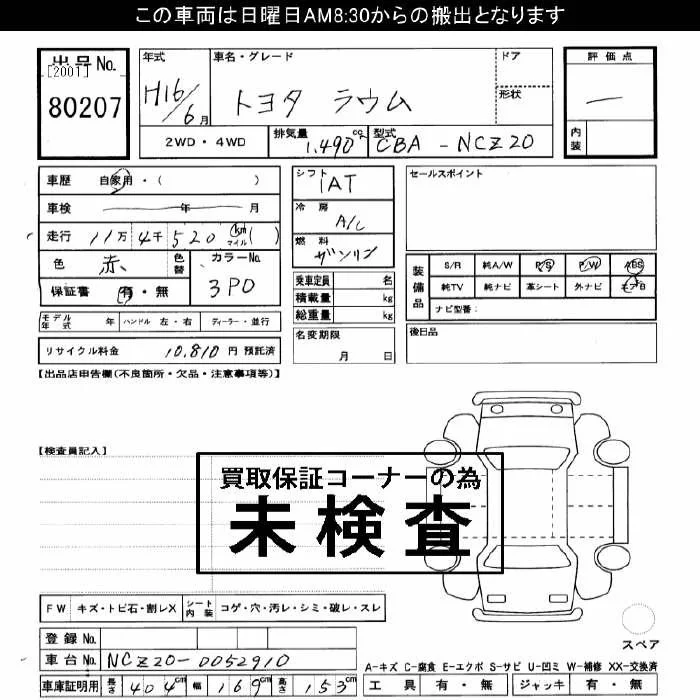 この車両は日曜日AM8:30からの搬出となります
出品No.
[2001]
80207
年式
H16/6月
車名・グレード
トヨタ ラウム
ドア
形状
2WD・4WD
排気量
1,490cc
型式
CBA-NCZ20
評価点
―
内装
車歴 自家用・( )
車検 年 月
走行 11万4千520(km マイル)( )
色 赤 色替
カラーNo. 3P0
保証書 有・無
シフト
IAT
冷房
A/C
燃料
ガソリン
乗車定員 名
積載量 kg
総重量 kg
名変期限
月 日
セールスポイント
装備品
S/R 純A/W P/S P/W ABS
純TV 純ナビ 革シート 外ナビ エアB
ナビ型番:
後日品
モデル年式 年 ハンドル 左・右 ディーラー・並行
リサイクル料金 10,810円 預託済
【出品店申告欄(不良箇所・欠品・注意事項等)】
【検査員記入】
買取保証コーナーの為
未検査
FW キズ・トビ石・割レX シート内装 コゲ・穴・汚レ・シミ・破レ・スレ
登録No.
車台No. NCZ20-0052910
車庫証明用 長さ 404cm 幅 169cm 高さ 153cm
スペア
A-キズ C-腐食 E-エクボ S-サビ U-凹ミ W-補修 XX-交換済
工具 有・無 ジャッキ 有・無